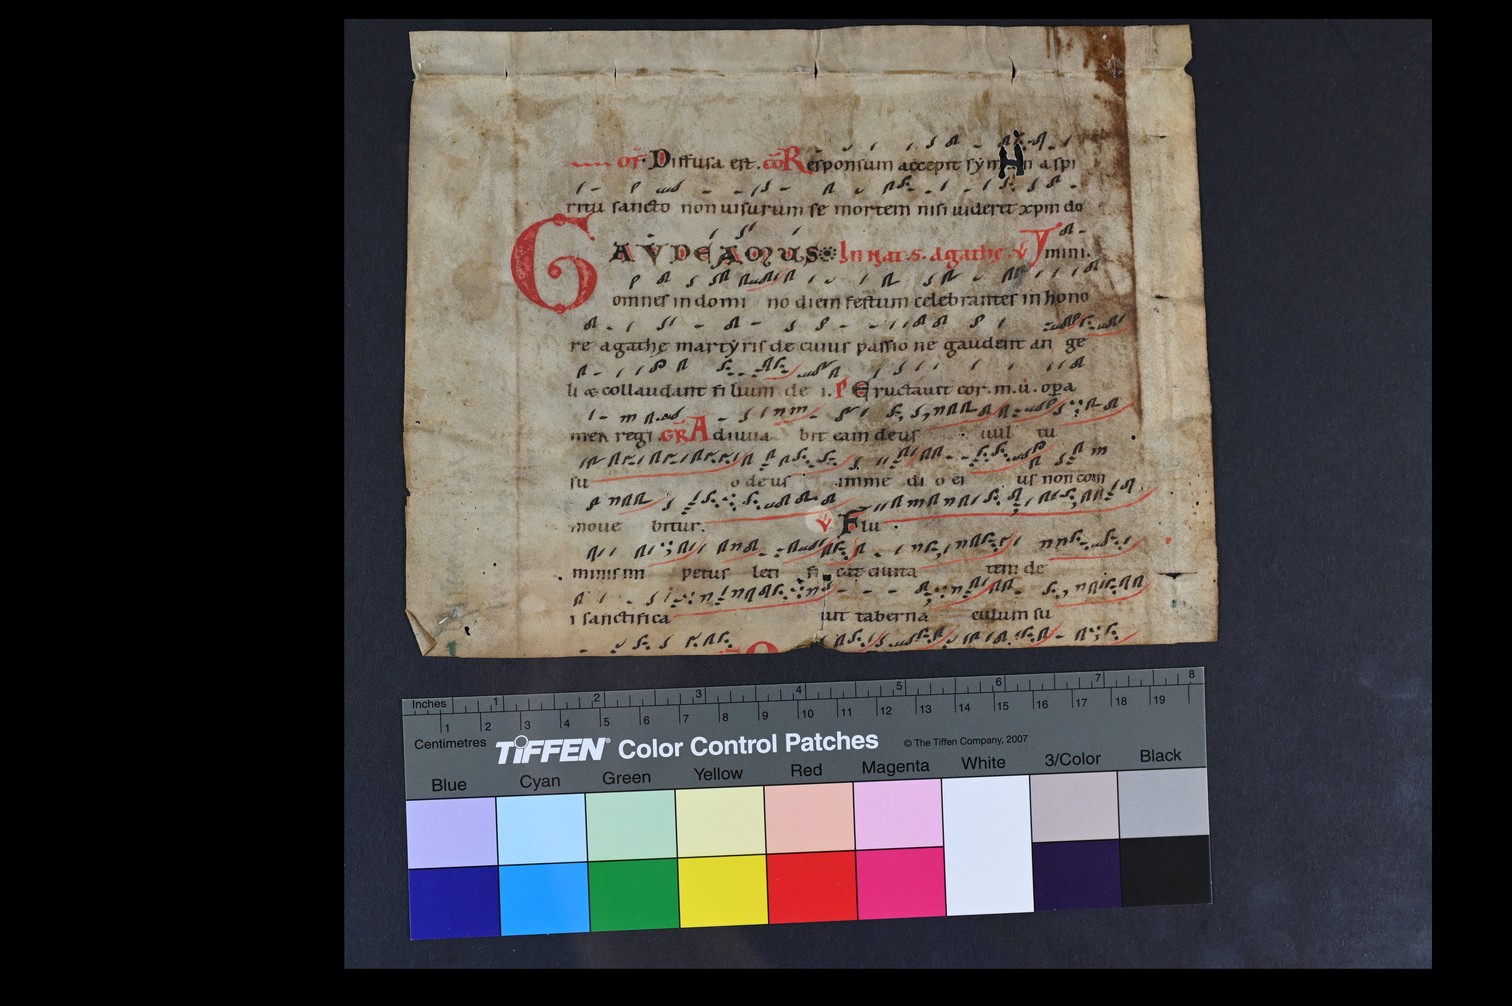 of. Diffusa est. cō Responsum accepit sym n a spi
ritu sancto non uisurum se mortem nisi uideret xpm do
GAVDEAMUS In nat. s. agathe. v mini.
omnes in domi no diem festum celebrantes in hono
re agathe martyris de cuius passio ne gaudent an ge
li & collaudant fi lium de i. P Eructauit cor. m. u. opa
mea regi. GR Adiuua bit eam deus uul tu
su o deus imme di o ei us non com
moue bitur. v Flu
minis im petus leti fi cat ciuita tem de
i sanctifica uit taberna culum su
Inches 1 2 3 4 5 6 7 8
1 2 3 4 5 6 7 8 9 10 11 12 13 14 15 16 17 18 19
Centimetres
TIFFEN® Color Control Patches © The Tiffen Company, 2007
Blue Cyan Green Yellow Red Magenta White 3/Color Black